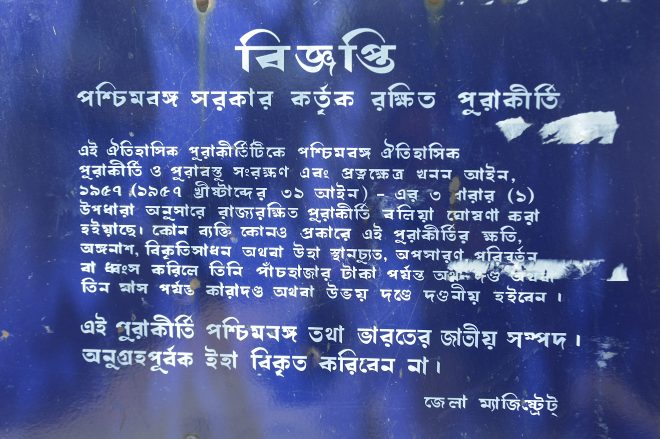 বিজ্ঞপ্তি
পশ্চিমবঙ্গ সরকার কর্তৃক রক্ষিত পুরাকীর্তি
এই ঐতিহাসিক পুরাকীর্তিটিকে পশ্চিমবঙ্গ ঐতিহাসিক
পুরাকীর্তি ও পুরাবস্তু সংরক্ষণ এবং প্রত্নক্ষেত্র খনন আইন,
১৯৫৭ (১৯৫৭ খ্রীষ্টাব্দের ৩১ আইন) - এর ৩ ধারার (১)
উপধারা অনুসারে রাজ্যরক্ষিত পুরাকীর্তি বলিয়া ঘোষণা করা
হইয়াছে। কোন ব্যক্তি কোনও প্রকারে এই পুরাকীর্তির ক্ষতি,
অঙ্গনাশ, বিকৃতিসাধন অথবা উহা স্থানচ্যুত, অপসারণ, পরিবর্তন
বা ধ্বংস করিলে তিনি পাঁচহাজার টাকা পর্যন্ত অর্থদণ্ড অথবা
তিন মাস পর্যন্ত কারাদণ্ড অথবা উভয় দণ্ডে দণ্ডনীয় হইবেন।
এই পুরাকীর্তি পশ্চিমবঙ্গ তথা ভারতের জাতীয় সম্পদ।
অনুগ্রহপূর্বক ইহা বিকৃত করিবেন না।
জেলা ম্যাজিষ্ট্রেট্